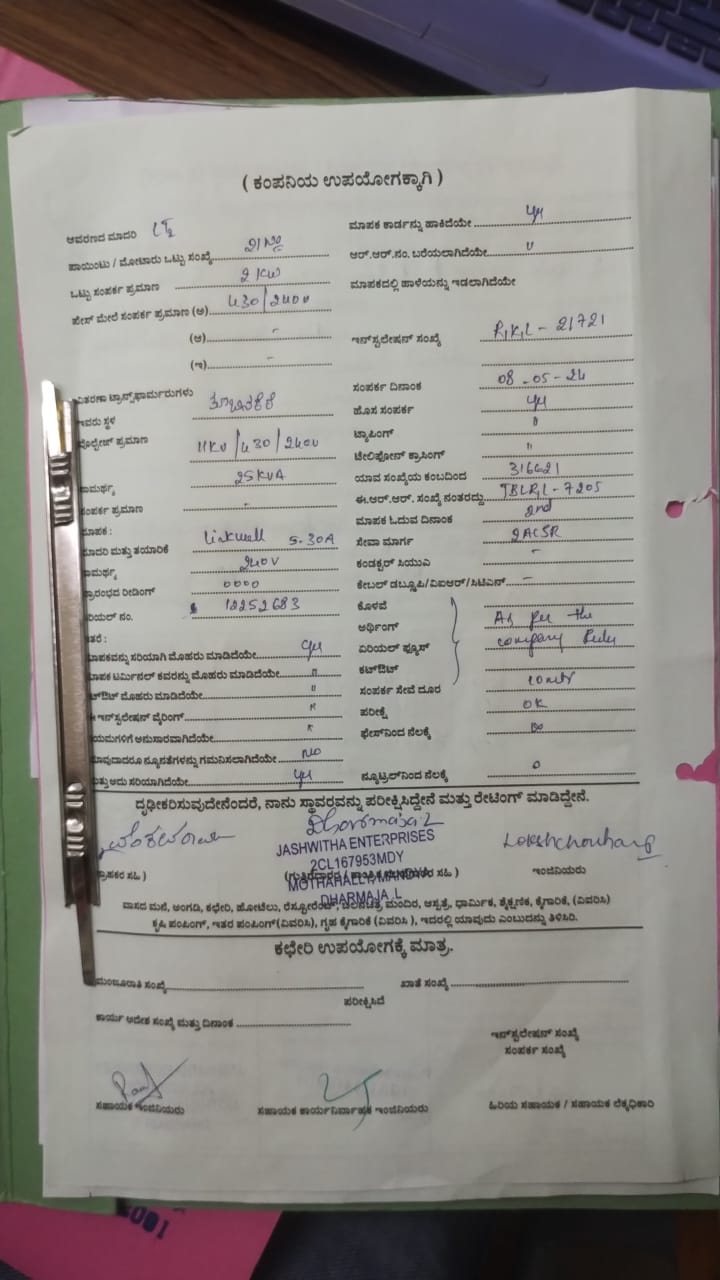 ( ಕಂಪನಿಯ ಉಪಯೋಗಕ್ಕಾಗಿ )
ಆವರಣದ ಮಾದರಿ
ಮಾಪಕ ಕಾರ್ಡನ್ನು ಹಾಕಿದೆಯೇ
ಪಾಯಿಂಟು / ಮೋಟಾರು ಒಟ್ಟು ಸಂಖ್ಯೆ
ಆರ್.ಆರ್.ನಂ. ಬರೆಯಲಾಗಿದೆಯೇ
ಒಟ್ಟು ಸಂಪರ್ಕ ಪ್ರಮಾಣ 2 KW
ಮಾಪಕದಲ್ಲಿ ಹಾಳೆಯನ್ನು ಇಡಲಾಗಿದೆಯೇ
ಪೇಸ್ ಮೇಲೆ ಸಂಪರ್ಕ ಪ್ರಮಾಣ (ಅ) 430/240V
(ಆ) -
ಇನ್‌ಸ್ಟಲೇಷನ್ ಸಂಖ್ಯೆ 21721
(ಇ) -
ವಿತರಣಾ ಟ್ರಾನ್ಸ್‌ಫಾರ್ಮರುಗಳು
ಸಂಪರ್ಕ ದಿನಾಂಕ 08-05-24
ಇವರು ಸ್ಥಳ
ಹೊಸ ಸಂಪರ್ಕ
ವೋಲ್ಟೇಜ್ ಪ್ರಮಾಣ 11KV/430/240V
ಟ್ಯಾಪಿಂಗ್ "
ಟೆಲಿಫೋನ್ ಕ್ರಾಸಿಂಗ್ "
ಸಾಮರ್ಥ್ಯ 25KVA
ಯಾವ ಸಂಖ್ಯೆಯ ಕಂಬದಿಂದ 316421
ಸಂಪರ್ಕ ಪ್ರಮಾಣ -
ಈ.ಆರ್.ಆರ್. ಸಂಖ್ಯೆ ನಂತರದ್ದು 7205
ಮಾಪಕ :
ಮಾಪಕ ಓದುವ ದಿನಾಂಕ 2nd
ಮಾದರಿ ಮತ್ತು ತಯಾರಿಕೆ Linkwell 5-30A
ಸೇವಾ ಮಾರ್ಗ 2ACSR
ಸಾಮರ್ಥ್ಯ 240V
ಕಂಡಕ್ಟರ್ ಸಿಯುಎ -
ಪ್ರಾರಂಭದ ರೀಡಿಂಗ್ 0000
ಕೇಬಲ್ ಡಬ್ಲ್ಯೂಪಿ/ವಿಐಆರ್/ಸಿಟಿಎಸ್ -
ರಿಯಲ್ ನಂ. 12252683
ಕೊಳವೆ
ಅರ್ಥಿಂಗ್ As per the
ತರೆ :
ಏರಿಯಲ್ ಫ್ಯೂಸ್ company Rules
ಮಾಪಕವನ್ನು ಸರಿಯಾಗಿ ಮೊಹರು ಮಾಡಿದೆಯೇ yes
ಕಟ್‌ಔಟ್
ಮಾಪಕ ಟರ್ಮಿನಲ್ ಕವರನ್ನು ಮೊಹರು ಮಾಡಿದೆಯೇ "
ಸಂಪರ್ಕ ಸೇವೆ ದೂರ
ಕಟ್‌ಔಟ್ ಮೊಹರು ಮಾಡಿದೆಯೇ "
ಪರೀಕ್ಷೆ OK
ಇನ್‌ಸ್ಟಲೇಷನ್ ವೈರಿಂಗ್
ಫೇಸ್‌ನಿಂದ ನೆಲಕ್ಕೆ
ನಿಯಮಗಳಿಗೆ ಅನುಸಾರವಾಗಿದೆಯೇ
ಯಾವುದಾದರೂ ನ್ಯೂನತೆಗಳನ್ನು ಗಮನಿಸಲಾಗಿದೆಯೇ NO
ಮತ್ತು ಅದು ಸರಿಯಾಗಿದೆಯೇ yes
ನ್ಯೂಟ್ರಲ್‌ನಿಂದ ನೆಲಕ್ಕೆ 0
ದೃಢೀಕರಿಸುವುದೇನೆಂದರೆ, ನಾನು ಸ್ಥಾವರವನ್ನು ಪರೀಕ್ಷಿಸಿದ್ದೇನೆ ಮತ್ತು ರೇಟಿಂಗ್ ಮಾಡಿದ್ದೇನೆ.
Dharmaja L
JASHWITHA ENTERPRISES
2CL167953MDY
ಗ್ರಾಹಕರ ಸಹಿ )
ಇಂಜಿನಿಯರು
MOTHAHALLI, MANDYA
DHARMAJA .L
ವಾಸದ ಮನೆ, ಅಂಗಡಿ, ಕಛೇರಿ, ಹೋಟೆಲು, ರೆಸ್ಟೋರೆಂಟ್, ಚಲನಚಿತ್ರ ಮಂದಿರ, ಆಸ್ಪತ್ರೆ, ಧಾರ್ಮಿಕ, ಶೈಕ್ಷಣಿಕ, ಕೈಗಾರಿಕೆ, (ವಿವರಿಸಿ)
ಕೃಷಿ ಪಂಪಿಂಗ್, ಇತರ ಪಂಪಿಂಗ್(ವಿವರಿಸಿ), ಗೃಹ ಕೈಗಾರಿಕೆ (ವಿವರಿಸಿ ), ಇದರಲ್ಲಿ ಯಾವುದು ಎಂಬುದನ್ನು ತಿಳಿಸಿರಿ.
ಕಛೇರಿ ಉಪಯೋಗಕ್ಕೆ ಮಾತ್ರ.
ಮಂಜೂರಾತಿ ಸಂಖ್ಯೆ
ಖಾತೆ ಸಂಖ್ಯೆ
ಪರೀಕ್ಷಿಸಿದೆ
ಕಾರ್ಯ ಆದೇಶ ಸಂಖ್ಯೆ ಮತ್ತು ದಿನಾಂಕ
ಇನ್‌ಸ್ಟಲೇಷನ್ ಸಂಖ್ಯೆ
ಸಂಪರ್ಕ ಸಂಖ್ಯೆ
ಸಹಾಯಕ ಇಂಜಿನಿಯರು
ಸಹಾಯಕ ಕಾರ್ಯನಿರ್ವಾಹಕ ಇಂಜಿನಿಯರು
ಹಿರಿಯ ಸಹಾಯಕ / ಸಹಾಯಕ ಲೆಕ್ಕಾಧಿಕಾರಿ